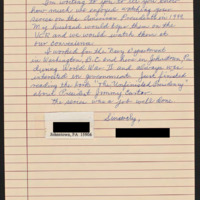 I'm writing to you to let you know
how much we enjoyed watching your
series on the American Presidents in 1999.
My husband would tape them on the
VCR and we would watch them at
our convenience.
I worked for the Navy Department
in Washington, D.C. and here in Johnstown, Pa.
during World War II and always was
interested in government. Just finished
reading the book "The Unfinished Presidency"
about President Jimmy Carter.
The series was a job well done.
Sincerely,
Johnstown, PA 15905